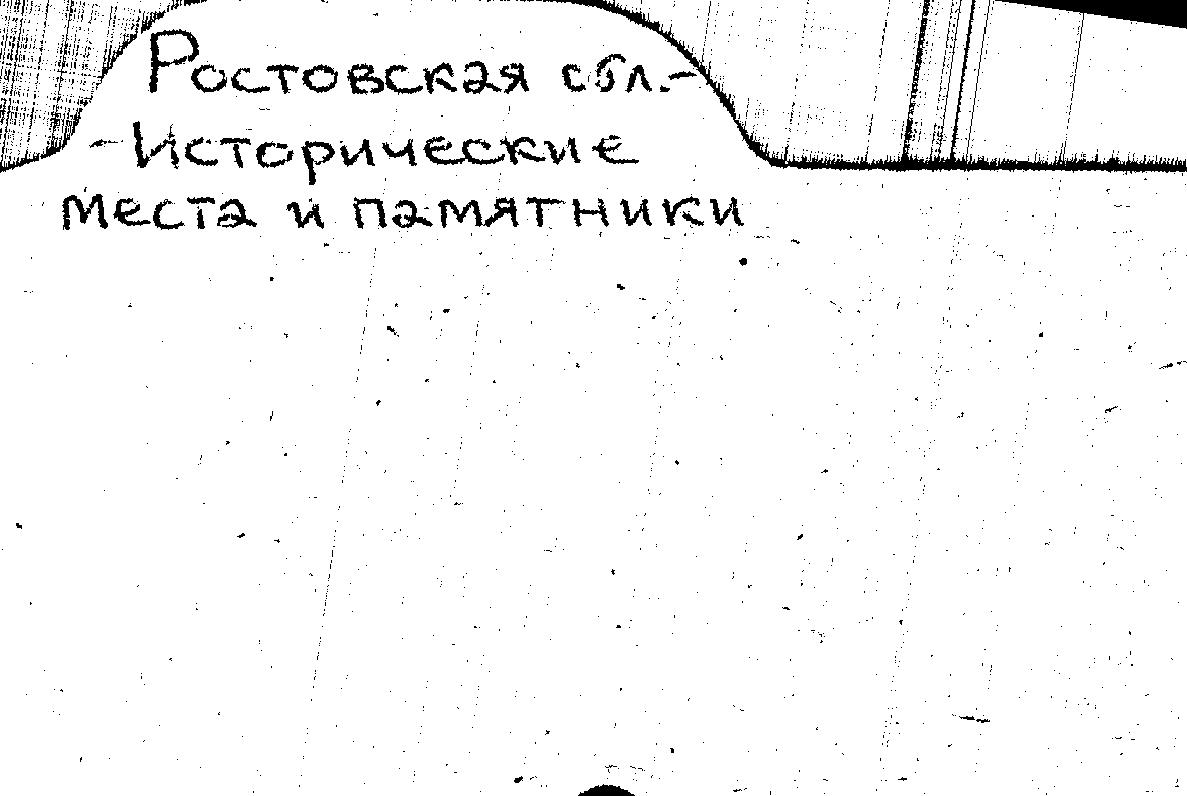 Ростовская обл.-
-Исторические
места и памятники